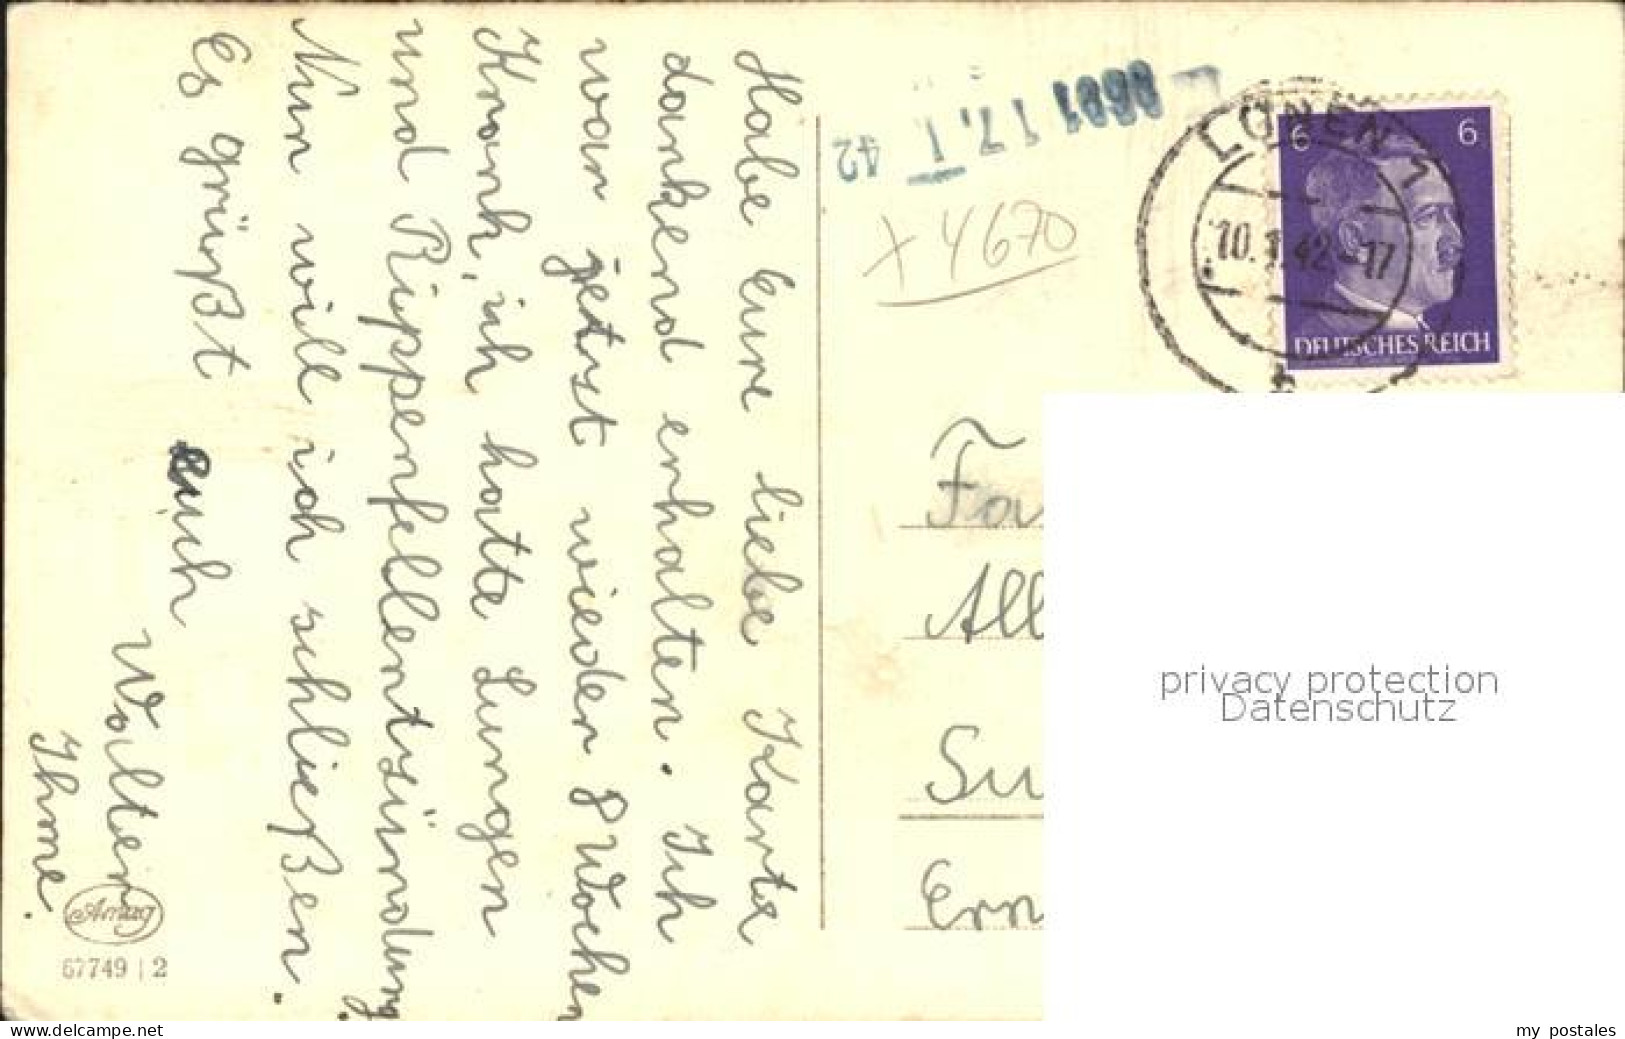 Habe Eure liebe Karte
dankend erhalten. Ich
war jetzt wieder 8 Wochen
Krank, ich hatte Lungen
und Rippenfellentzündung.
Nun will ich schließen.
Es grüßt euch
Walter
Ihme.
Amag
67749 | 2
0601 17. 1. 42
x 4670
LÜNEN 1
10.1.42-17
6 6
DEUTSCHES REICH
Fa
All
Su
Ern
privacy protection
Datenschutz
www.delcampe.net
my postales